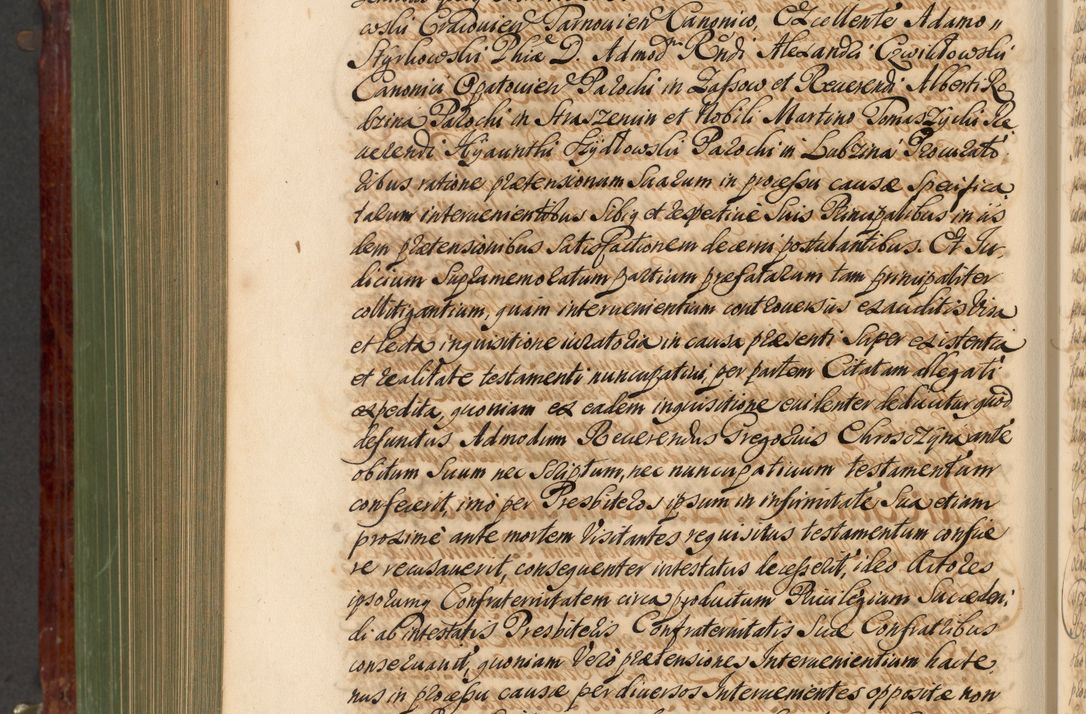 owski Cracovien Tarnovien Canonico, Excellente Adamo
Styrkowski Phiæ D. Admodm Rndi Alexandri Czwiklowski
Canonici Opatovien Parochi in Zassow et Reverendi Alberti Ro
bzina Parochi in Straszenin et Nobili Martino Tomaszycki Re
verendi Hyacinthi Szydlowski Parochi in Lubzina Procurato
ribus ratione prætensionum Suarum in processu causæ Specifica
tarum intervenientibus Sibiq et respective Suis Principalibus in iis
dem prætensionibus Satisfactionem decerni postulantibus. Et Iu
dicium Supramemoratum partium præfatarum tam principaliter
collitigantium, quam intervenientium controversiis exauditis Visa
et lecta inquisitione iuratoria in causa præsenti Super existentia
et realitate testamenti nuncupativi, per partem Citatam allegati
expedita, quoniam ex eadem inquisitione evidenter deducitur quod
defunctus Admodum Reverendus Gregorius Chrosczyna ante
obitum Suum nec Scriptum, nec nuncupativum testamentum
confecerit, imo per Presbiteros ipsum in infirmitate Sua etiam
proxime ante mortem Visitantes requisitus testamentum confice
re recusaverit, consequenter intestatus decesserit, ideo Actores
ipsorumq Confraternitatem circa productum Privilegium Succeden
di ab intestatis Presbiteris Confraternitatis Suæ Confratribus
conservavit, quoniam Vero prætensiones Intervenientium hacte
nus in processu causæ per diversos Intervenientes oppositæ non